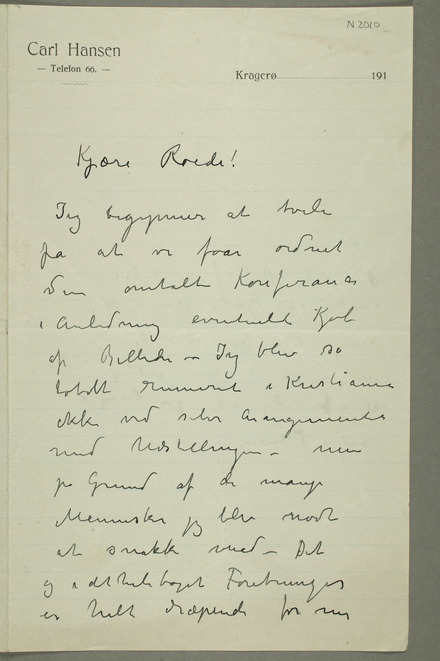 N 2010
Carl Hansen
— Telefon 66. —
Kragerø 191
Kjære Roede!
Jeg begynner at tvile
på at vi faar ordnet
den omtalte Konferance
i Anledning eventuelt Kjøb
af Billeder – Jeg blev så
totalt ruineret i Kristiania
ikke ved selve Arangementet
med Udstillingen – men
på Grund af de mange
Mennesker jeg blev nødt
at snakke med – Det
og i det hele taget Foretninger
er helt dræpende for mig